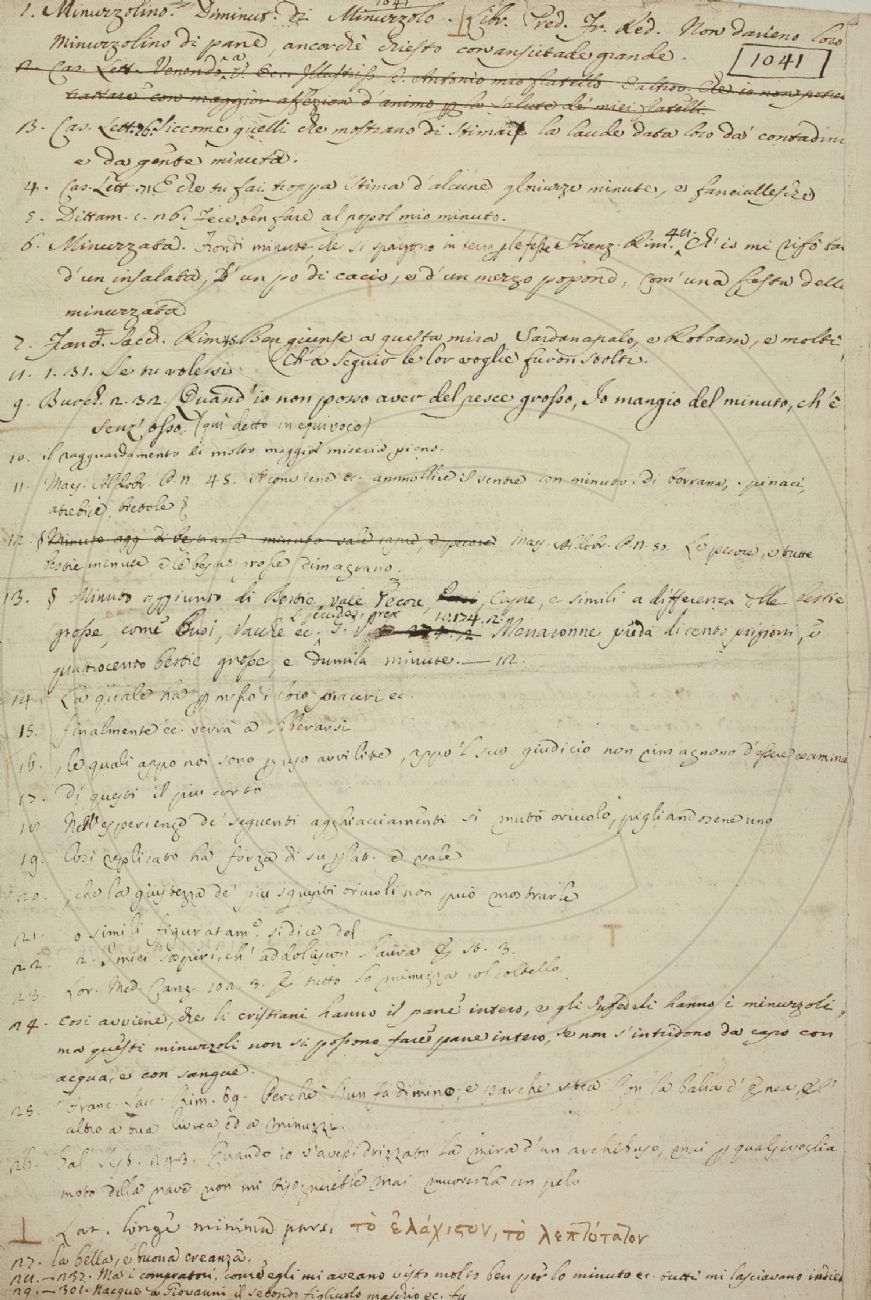 1. Minuzzolino. Diminut. di Minuzzolo. Libr. Pred. Fr. Red. Non davieno loro
1041
minuzzolino di pane, ancorchè chiesto con ansietade grande.
1041
2. Cas. Lett. Venendo Illustriss. Antonio mio fratello Che io non potrei
trattare con maggior affezion d'animo la salute de' miei fratelli.
3. Cas. Lett. 76. Siccome quelli che mostrano di stimare la laude data loro da' contadini
e da gente minuta.
4. Cas. Lett. 71 E che tu fai troppa stima d'alcune gloriuzze minute, e fanciullesche
5. Dittam. Fece ben fare al popol mio minuto.
6. Minuzzata. Frondi minute, che si spargono in terra le feste Franz. Rim. Ch'io mi rifò
d'un insalata, D'un po di cacio, e d'un mezzo popone, Com' una festa della
minuzzata
7. Franc. Sacch. Rim. 48. Ben giunse a questa mira Sardanapalo, e Roboam, e molti
Ch'a seguir le lor voglie furon stolti.
1. 31. Se tu volessi
9. Burch. 2. 32. Quand' io non posso aver del pesce grosso, Io mangio del minuto, ch'è
senz' osso. (qui detto in equivoco)
10. il ragguardamento di molto maggior miseria pieno.
11. Maes. Aldobr. P. N. 45. ec. ammollire il ventre con minuto di borrana, spinaci,
atrebici, bietole
12. § Minuto agg. di bestiame minuto vale capre, e pecore Maes. Aldobr. P. N. Le pecore, e tutte
bestie minute e le bestie grosse dimagrano.
13. § Minuto aggiunto di Bestie, vale Pecore, Capre, e simili a differenza delle bestie
grosse, come Buoi, Vacche ec. Menaronne preda di cento prigioni, e
quattrocento bestie grosse, e dumila minute. — 12.
14. La quale ha messo i loro piaceri ec.
15. finalmente ec. verrà a liberarsi
16. , le quali appo noi sono avvilite, appo 'l suo giudicio non rimagnono d'essere examina
17. Di questi il più corto
18 Nell' esperienze de' seguenti agghiacciamenti si mutò oriuolo, pigliandosene uno
19. Così replicato ha forza di superlat. e vale
20. , che la giustezza de' più squisiti oriuoli non può mostrarle
21. o simili figuratam. si dice del
22. 2. I miei sospiri, ch' addolciscon Laura st. 3.
23. Lor. Med. Canz. 3. E tutto lo minuzza col coltello.
24. Così avviene, che li cristiani hanno il pane intero, e gli Infedeli hanno i minuzzoli,
ma questi minuzzoli non si possono fare pane intero, se non s'intridono da capo con
acqua, e con sangue.
25. Franc. Sac. Rim. Perchè l'un fa dimino, e parche
altro a sua livrea, ed a minuzzi.
26. Gal. Sist. Quando io v'avessi drizzato la mira d'un archibuso, mai qualsivoglia
moto della nave non mi bisognerebbe mai muoverla un pelo
Lat. longe minima pars, τὸ ἐλάχιστον, τὸ λεπτότατον
27. la bella, e buona creanza.
— 252. Ma i compratori, com' egli mi aveano visto molto ben per lo minuto ec. tutti mi lasciavano indie
29. — 301. Nacque a Giovanni il secondo figliuolo maschio ec. fu